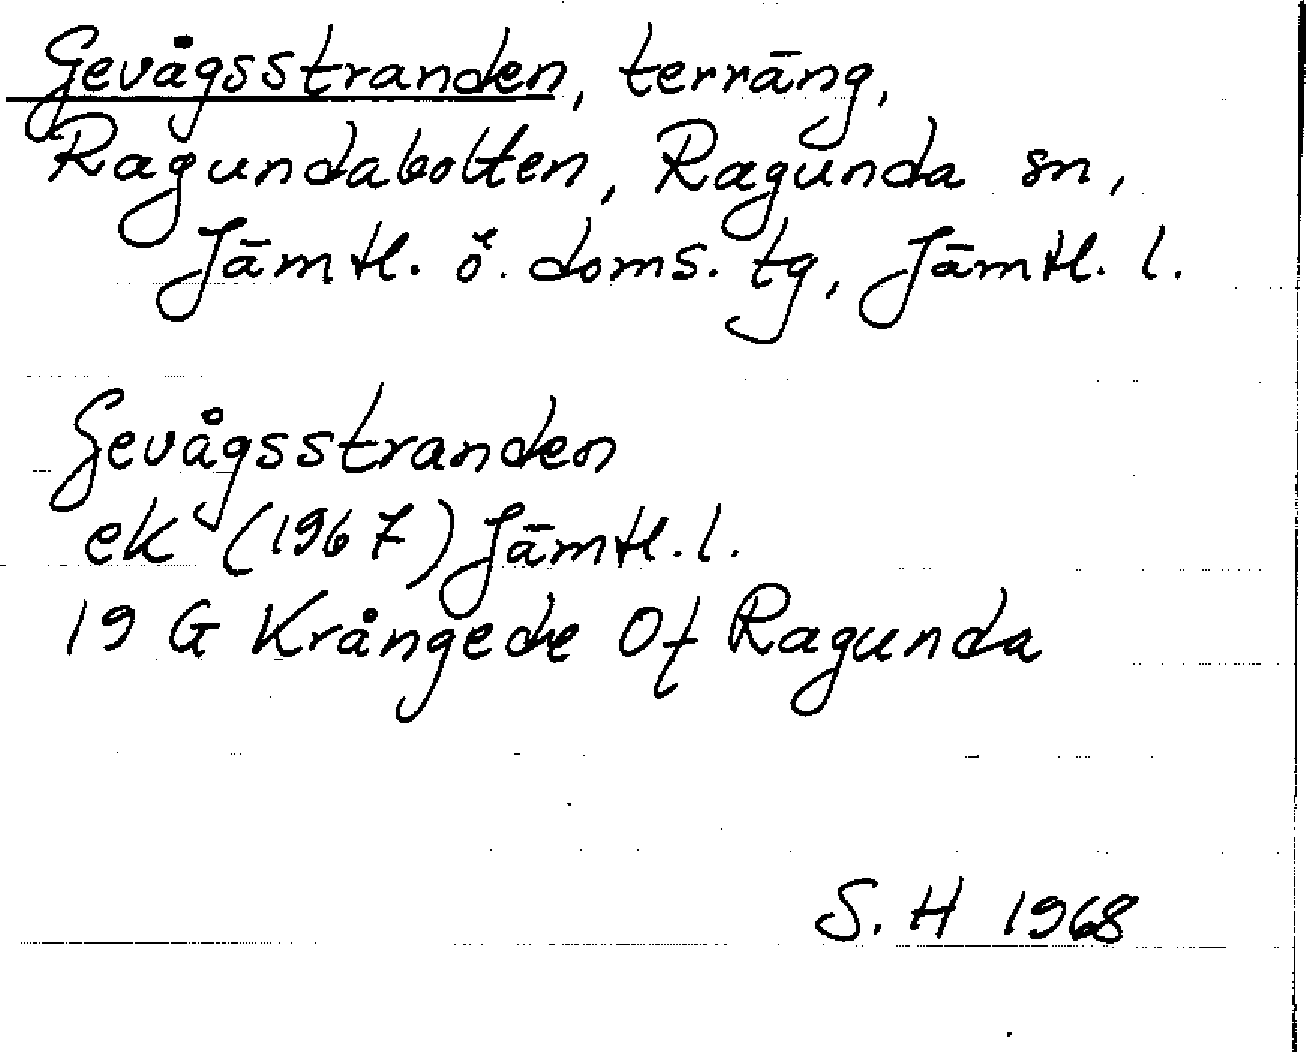 Gevågsstranden, terräng,
Ragundabolten, Ragunda sn,
Jämtl. ö. doms. tg, Jämtl. l.
Gevågsstranden
ek (1967) Jämtl. l.
19 G Krångede Of Ragunda
S. H 1968